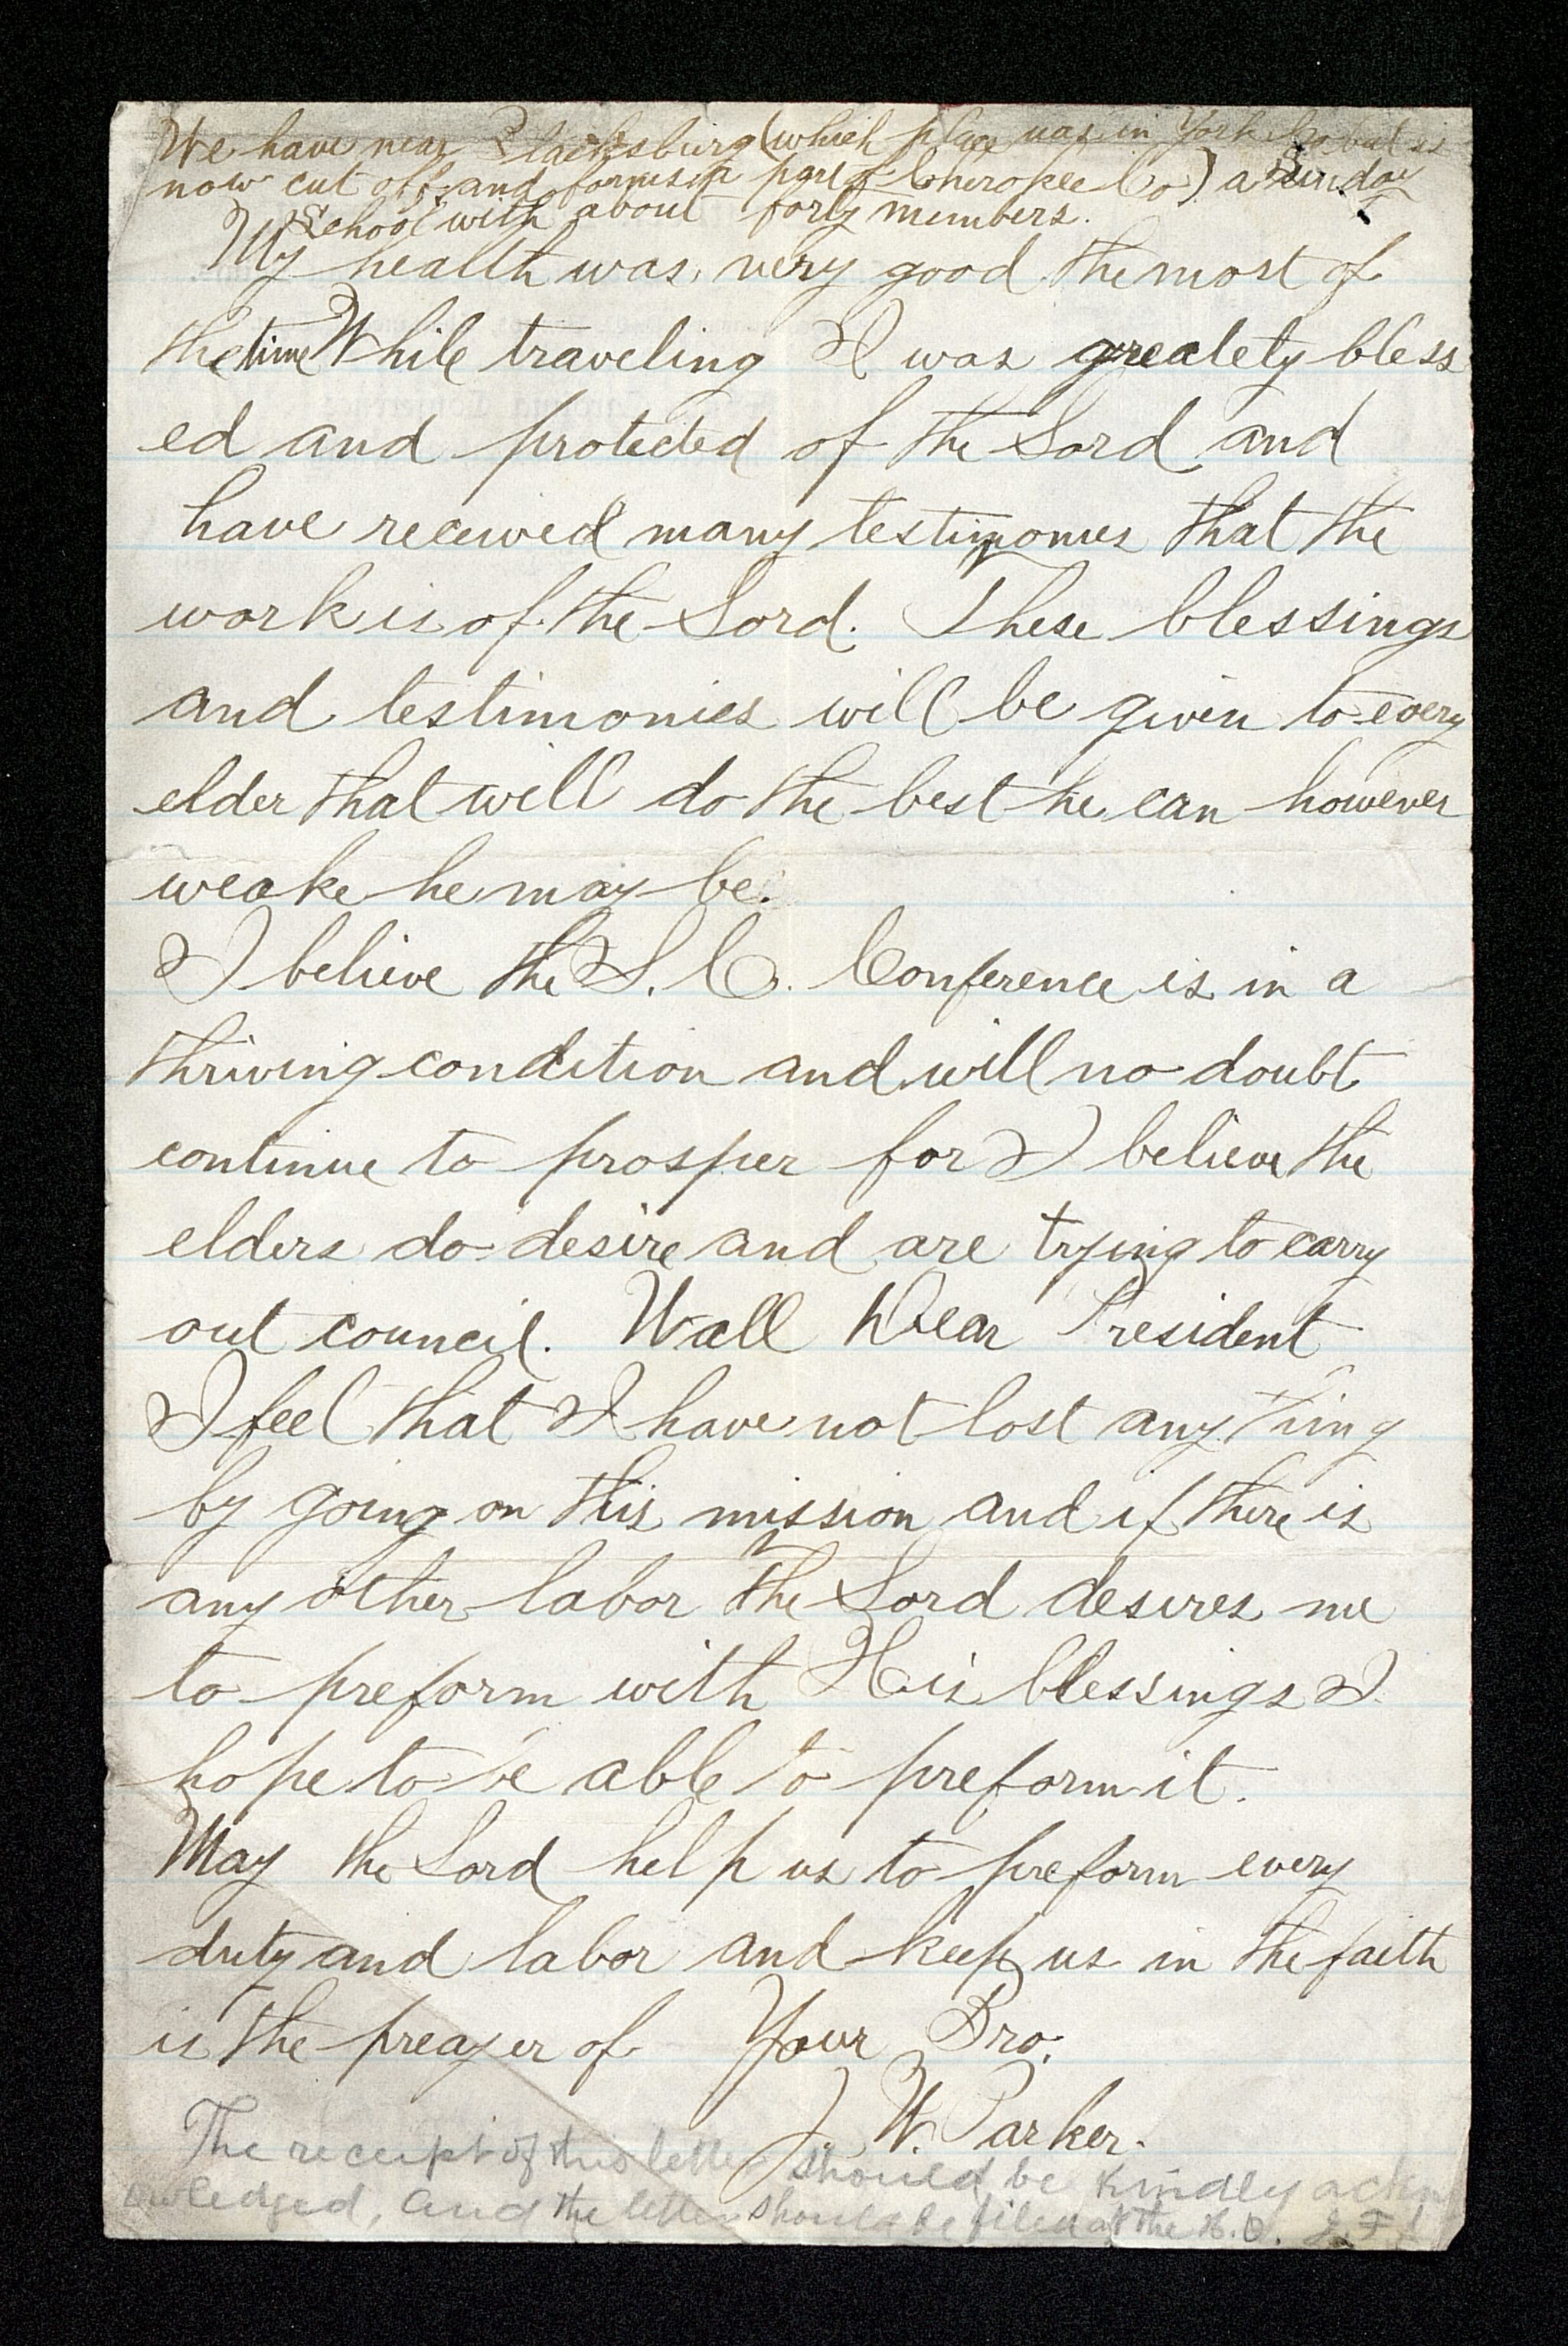 We have near Blacksburg (which place was in York Co but is
now cut off and forms a part of Cherokee Co) a Sunday
School with about forty members.
My health was very good the most of
the time While traveling I was greatety bless
ed and protected of the Lord and
have received many testimonies that the
work is of the Lord. These blessings
and testimonies will be given to every
elder that will do the best he can however
weake he may be.
I believe the S. C. Conference is in a
thriving condition and will no doubt
continue to prosper for I believe the
elders do desire and are trying to carry
out council. Wall Dear President
I feel that I have not lost any thing
by going on this mission and if there is
any other labor the Lord desires me
to preform with His blessings I
hope to be able to preform it.
May the Lord help us to preform every
duty and labor and keep us in the faith
is the preayer of Your Bro.
J. W. Parker.
The receipt of this letter should be kindly ackn
owledged, and the letter should be filed at the H.O. J.F.S